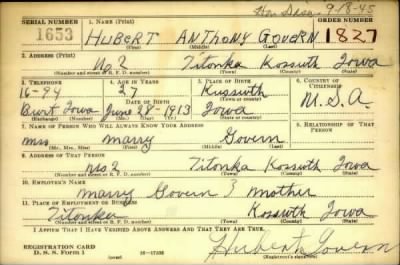 Hon Disc. 9-18-45
SERIAL NUMBER 1. NAME (Print) ORDER NUMBER
1653 HUBERT ANTHONY GOVERN 1827
(First) (Middle) (Last)
2. ADDRESS (Print)
No 2 Titonka Kossuth Iowa
(Number and street or R. F. D. number) (Town) (County) (State)
3. TELEPHONE 4. AGE IN YEARS 5. PLACE OF BIRTH 6. COUNTRY OF CITIZENSHIP
16-94 27 Kussuth
DATE OF BIRTH (Town or county)
Burt Iowa June 28 - 1913 Iowa U.S.A.
(Exchange) (Number) (Mo.) (Day) (Yr.) (State or country)
7. NAME OF PERSON WHO WILL ALWAYS KNOW YOUR ADDRESS 8. RELATIONSHIP OF THAT PERSON
Mrs Mary Govern
(Mr., Mrs., Miss) (First) (Middle) (Last)
9. ADDRESS OF THAT PERSON
No. 2 Titonka Kossuth Iowa
(Number and street or R. F. D. number) (Town) (County) (State)
10. EMPLOYER'S NAME
Mary Govern mother
11. PLACE OF EMPLOYMENT OR BUSINESS
Titonka Kossuth Iowa
(Number and street or R. F. D. number) (Town) (County) (State)
I AFFIRM THAT I HAVE VERIFIED ABOVE ANSWERS AND THAT THEY ARE TRUE.
REGISTRATION CARD
D. S. S. Form 1 (over) Hubert Govern
(Registrant's signature)